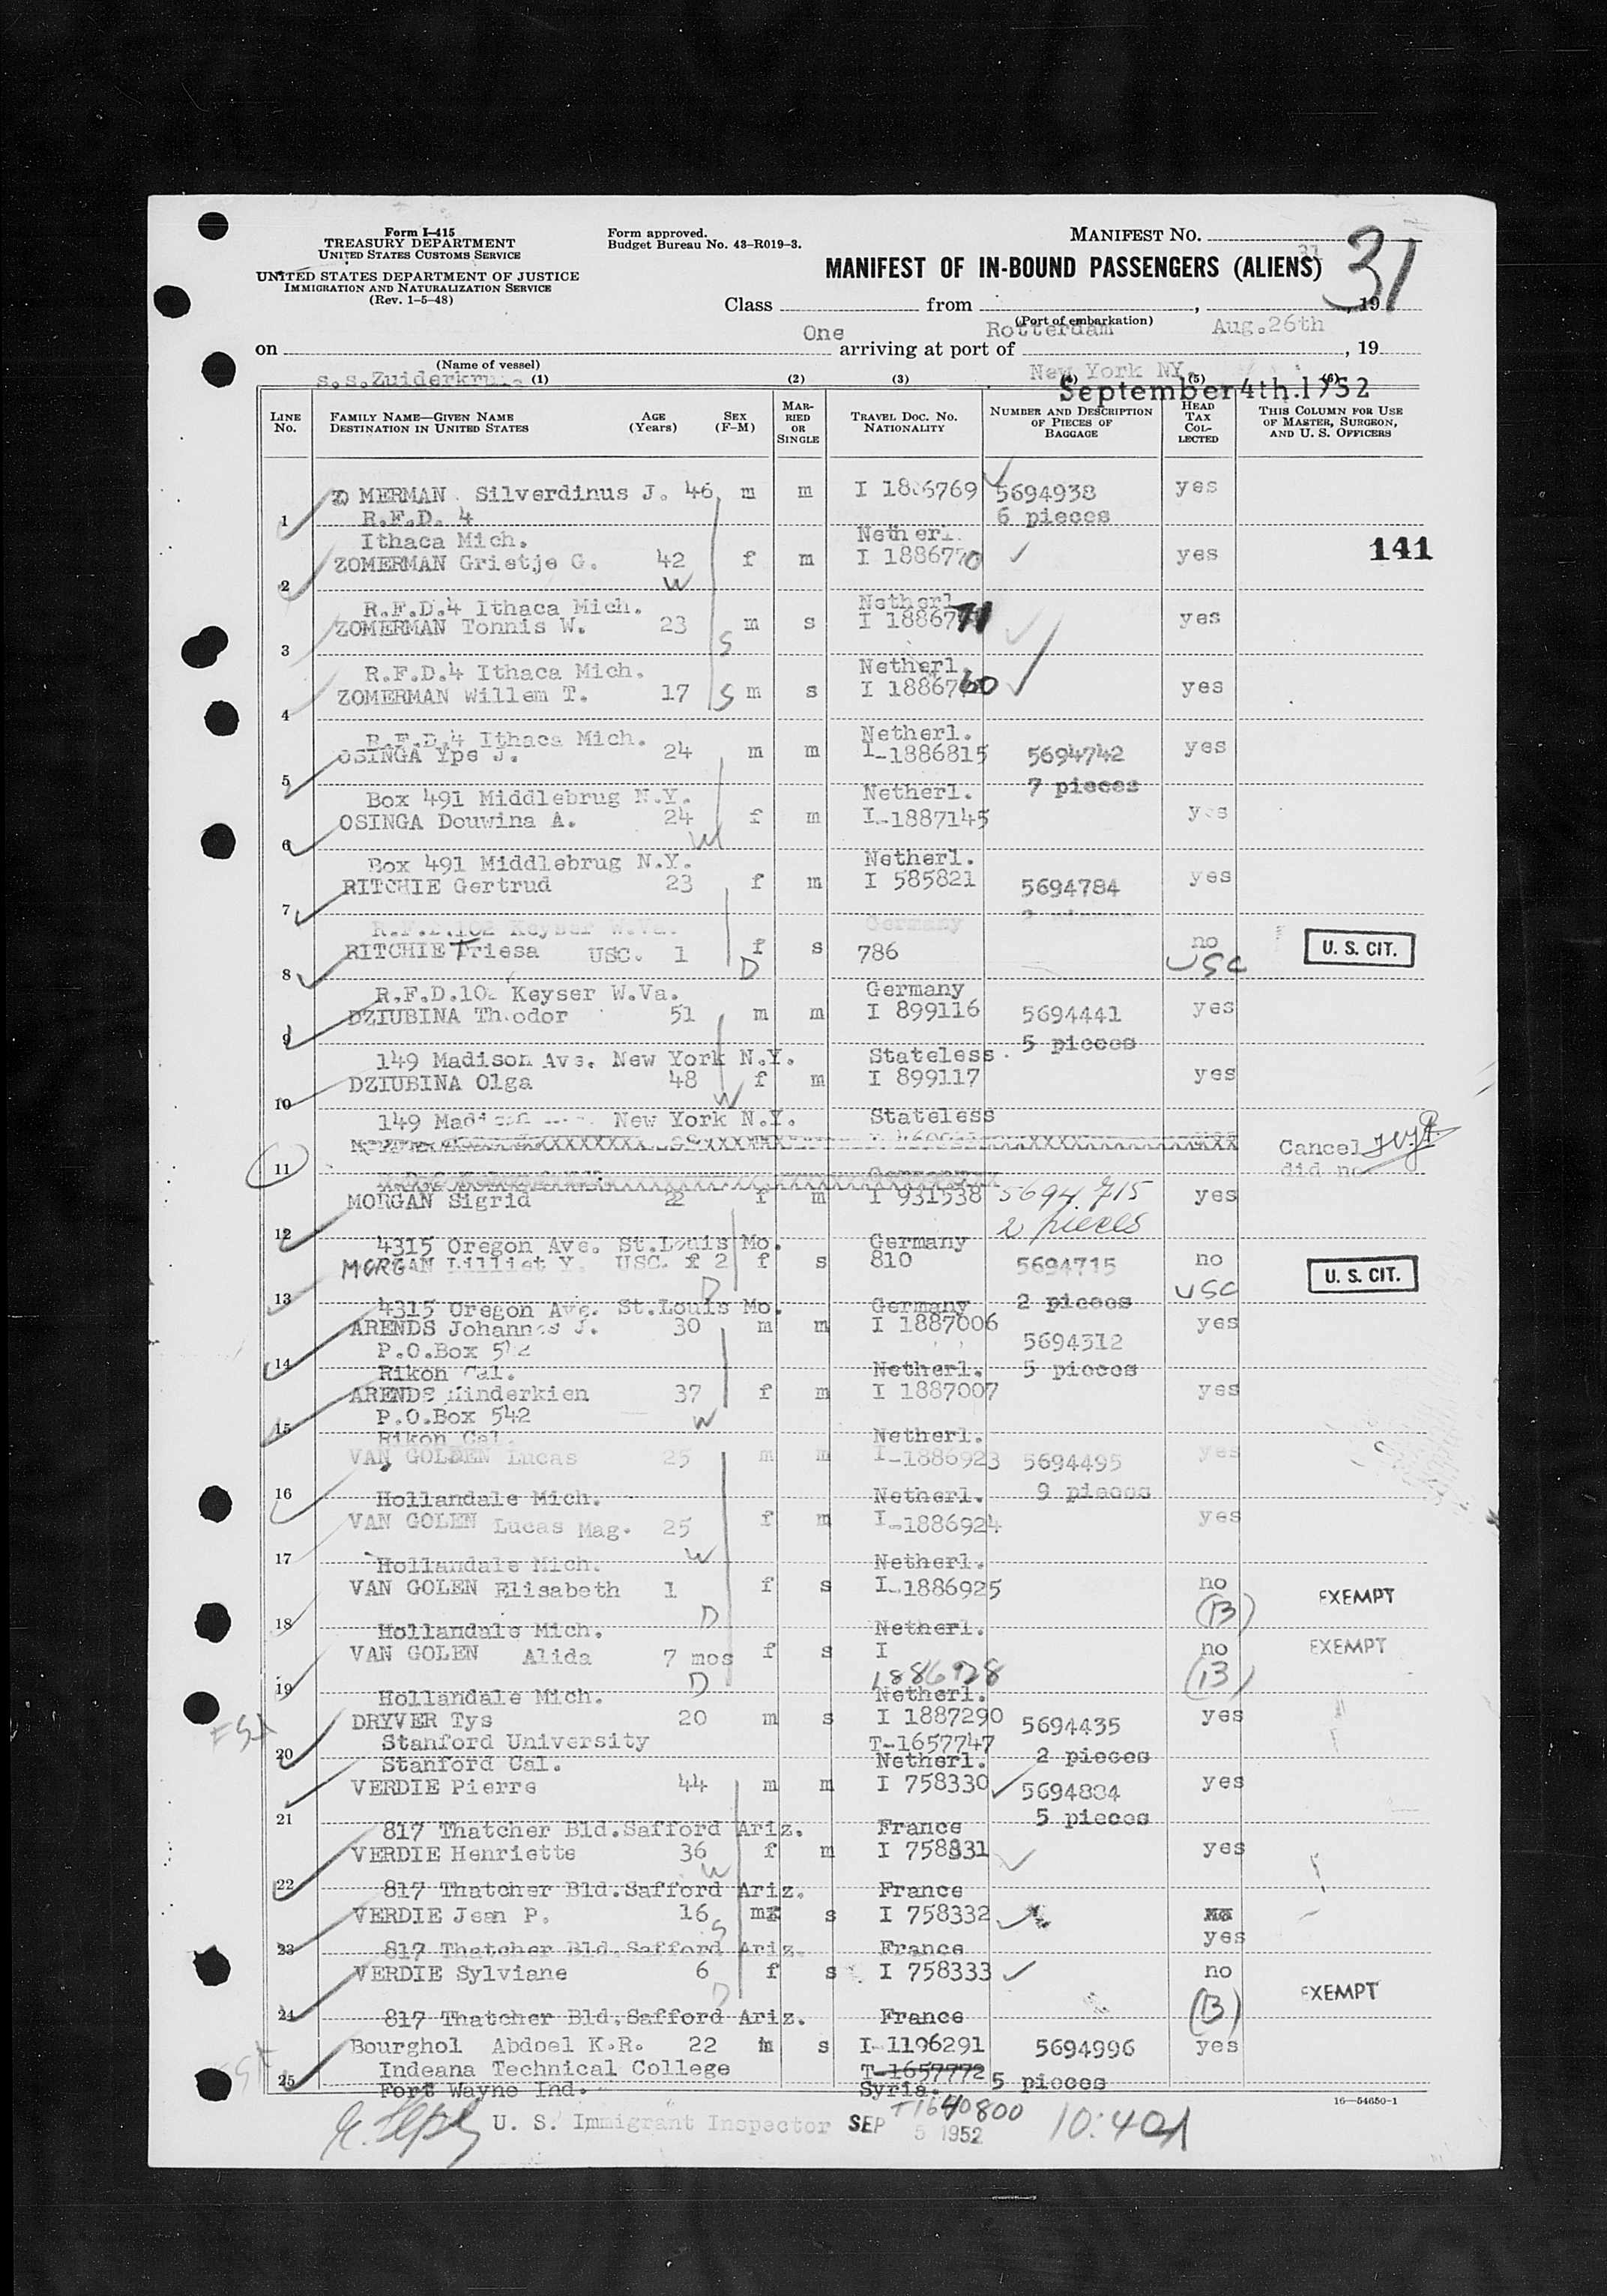 Form I-415
TREASURY DEPARTMENT
UNITED STATES CUSTOMS SERVICE
UNITED STATES DEPARTMENT OF JUSTICE
IMMIGRATION AND NATURALIZATION SERVICE
(Rev. 1-5-48)
Form approved.
Budget Bureau No. 43-R019-3.
MANIFEST No.
31
31
MANIFEST OF IN-BOUND PASSENGERS (ALIENS)
Class from , , 19
One (Port of embarkation) Rotterdam Aug.26th
on arriving at port of , 19
(Name of vessel) New York NY.
s.s.Zuiderkruis (1) (2) (3) (4) (5) (6)
September 4th.1952
LINE No. FAMILY NAME—GIVEN NAME DESTINATION IN UNITED STATES AGE (Years) SEX (F-M) MARRIED OR SINGLE TRAVEL DOC. No. NATIONALITY NUMBER AND DESCRIPTION OF PIECES OF BAGGAGE HEAD TAX COLLECTED THIS COLUMN FOR USE OF MASTER, SURGEON, AND U. S. OFFICERS
MERMAN Silverdinus J. 46 m m I 1886769 5694938 yes
1 R.F.D. 4 6 pieces
Ithaca Mich. Netherl.
141
ZOMERMAN Grietje G. 42 f m I 1886770 yes
2 W
R.F.D.4 Ithaca Mich. Netherl.
ZOMERMAN Tonnis W. 23 m s I 1886771 yes
3 S
R.F.D.4 Ithaca Mich. Netherl.
ZOMERMAN Willem T. 17 S m s I 1886760 yes
4
R.F.D.4 Ithaca Mich. Netherl.
OSINGA Yps J. 24 m m I-1886815 5694742 yes
5 7 pieces
Box 491 Middlebrug N.Y. Netherl.
OSINGA Douwina A. 24 f m I-1887145 yes
6 W
Box 491 Middlebrug N.Y. Netherl.
RITCHIE Gertrud 23 f m I 585821 5694784 yes
7
R.F.D.102 Keyser W.Va. Germany
RITCHIE Triesa USC. 1 f s 786 no
8 D USC U. S. CIT.
R.F.D.10 Keyser W.Va. Germany
DZIUBINA Theodor 51 m m I 899116 5694441 yes
9 5 pieces
149 Madison Ave. New York N.Y. Stateless.
DZIUBINA Olga 48 f m I 899117 yes
10 W
149 New York N.Y. Stateless
11 Cancel
did no
MORGAN Sigrid 22 f m I 931538 5694715 yes
12 2 pieces
4315 Oregon Ave. St.Louis Mo. Germany
MORGAN Lilliet Y. USC. f 2 f s 810 5694715 no
13 D 2 pieces USC U. S. CIT.
4315 Oregon Ave. St.Louis Mo. Germany
ARENDS Johannes J. 30 m m I 1887006 yes
P.O.Box 542 5694312
14 Rikon Cal. Netherl. 5 pieces
ARENDS Minderkien 37 f m I 1887007 yes
P.O.Box 542 W
15 Rikon Cal. Netherl.
VAN GOLEN Lucas 25 m m I-1886923 5694495 yes
16 Hollandale Mich. Netherl. 9 pieces
VAN GOLEN Lucas Mag. 25 f m I-1886924 yes
17 W
Hollandale Mich. Netherl.
VAN GOLEN Elisabeth 1 f s I-1886925 no EXEMPT
18 D (13)
Hollandale Mich. Netherl.
VAN GOLEN Alida 7 mos f s I no EXEMPT
19 D 1886928 (13)
Hollandale Mich. Netherl.
DRYVER Tys 20 m s I 1887290 5694435 yes
Stanford University T-1657747
20 Stanford Cal. Netherl. 2 pieces
VERDIE Pierre 44 m m I 758330 5694884 yes
21 5 pieces
817 Thatcher Bld.Safford Ariz. France
VERDIE Henriette 36 f m I 758331 yes
22 W
817 Thatcher Bld.Safford Ariz. France
VERDIE Jean P. 16 m s I 758332 yes
23 S
817 Thatcher Bld.Safford Ariz. France
VERDIE Sylviane 6 f s I 758333 no
24 D (13) EXEMPT
817 Thatcher Bld.Safford Ariz. France
Bourghol Abdoel K.R. 22 m s I-1196291 5694996 yes
Indeana Technical College T-1657772
25 Fort Wayne Ind. Syria. 5 pieces
T1640800
16—54650-1
U. S. Immigrant Inspector SEP 5 1952 10:40